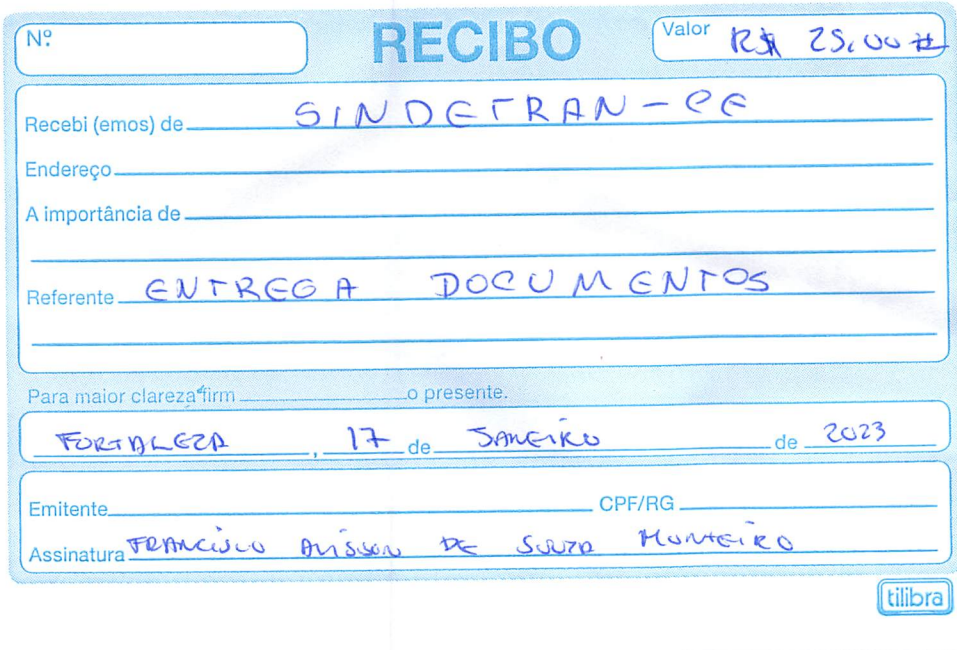 Nº RECIBO Valor R$ 25,00 #
Recebi (emos) de SINDETRAN-CE
Endereço
A importância de
Referente ENTREGA DOCUMENTOS
Para maior clareza firm o presente.
FORTALEZA, 17 de JANEIRO de 2023
Emitente CPF/RG
Assinatura FRANCISCO ALISSON DE SOUZA MONTEIRO
tilibra